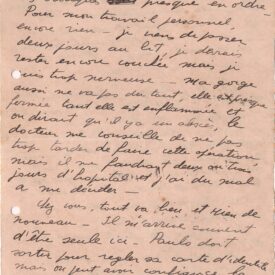 presque en ordre
Pour mon travail personnel,
encore rien - je viens de passer
deux jours au lit, je devrais
rester encore couchée mais je
suis trop nerveuse - Ma gorge
aussi ne va pas du tout, elle est presque
fermée tant elle est enflammée et
on dirait qu'il y a un abcès, le
docteur me conseille de ne pas
trop tarder de faire cette opération
mais il me faudrait deux ou trois
jours d'hôpital et j'ai du mal
à me décider -
Chez vous, tout va bien et rien de
nouveau - Il m'arrive souvent
d'être seule ici - Paulo doit
sortir pour régler sa carte d'identité
mais on peut avoir confiance